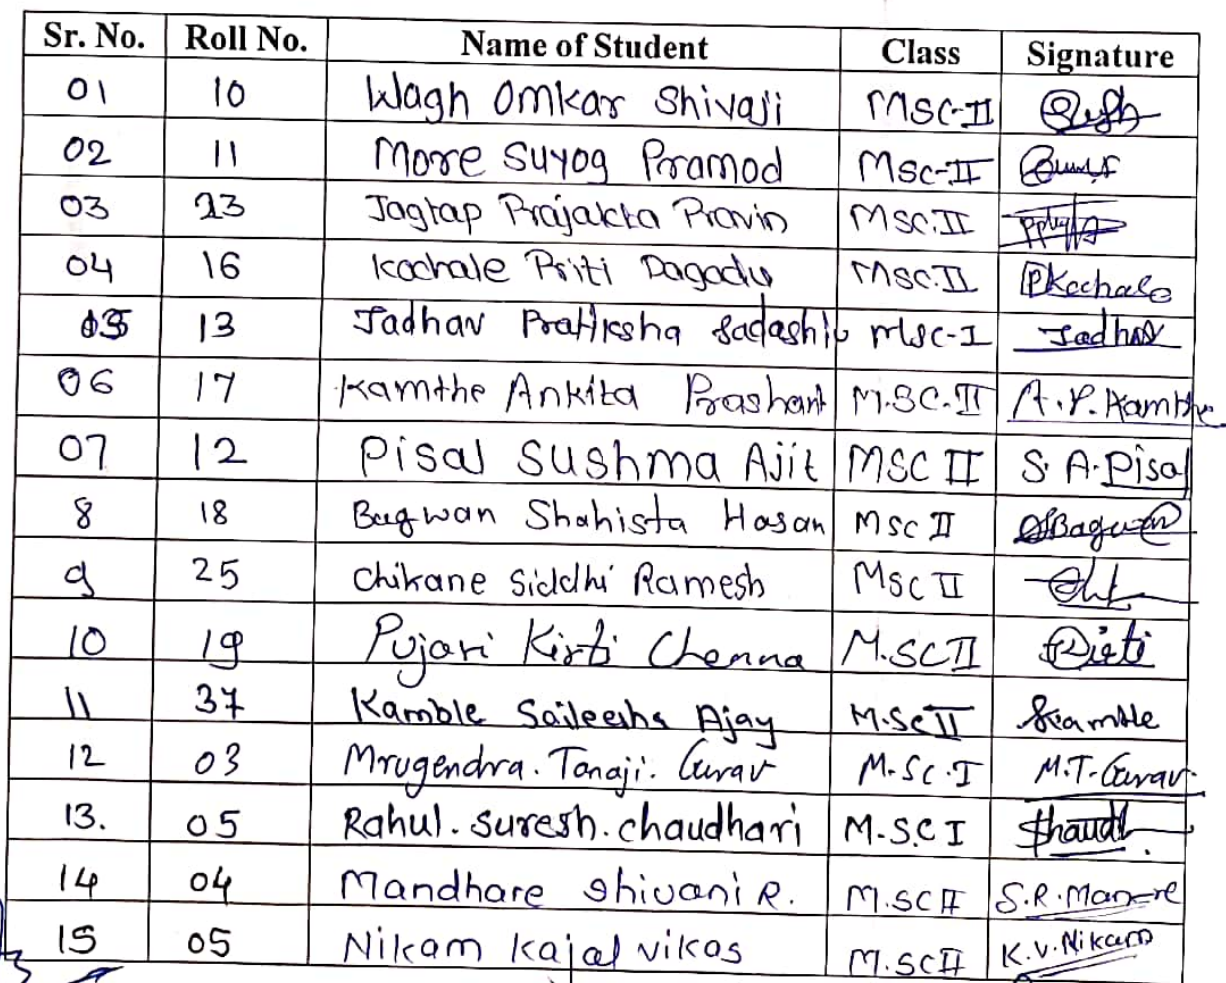 Sr. No. Roll No. Name of Student Class Signature
01 10 Wagh Omkar Shivaji MSC-II
02 11 More Suyog Pramod MSC-II
03 23 Jagtap Prajakta Pravin MSC.II
04 16 Kochale Priti Dagadu MSC.II PKochale
05 13 Jadhav Pratiksha Sadashiv MSC-I Jadhav
06 17 Kamthe Ankita Prashant M.SC.II A.P.Kamthe
07 12 Pisal Sushma Ajit MSC II S. A. Pisal
8 18 Bagwan Shahista Hasan MSC II SBagwan
9 25 Chikane Siddhi Ramesh MSC II
10 19 Pujari Kirti Chenna M.SC II
11 37 Kamble Ajay M.Sc II Skamble
12 03 Mrugendra. Tanaji. Gurav M.Sc.I M.T.Gurav.
13. 05 Rahul. suresh. chaudhari M.S.C I
14 04 Mandhare Shivani R. M.SC II S.R.Manere
15 05 Nikam Kajal vikas M.SC II K.V.Nikam